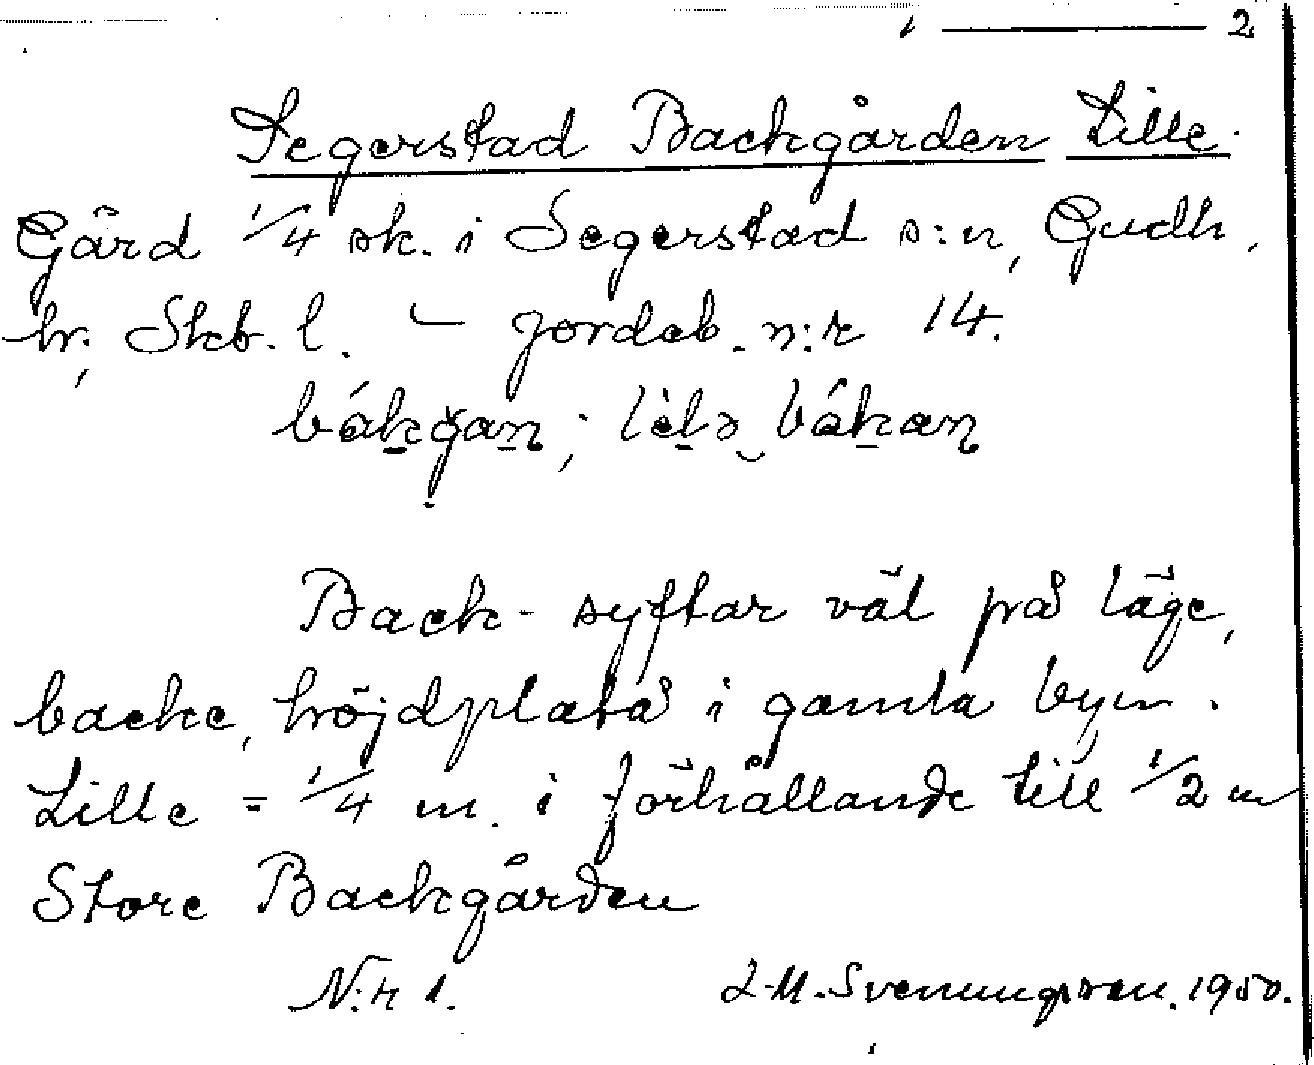 2
Segerstad Backgården Lille.
Gård 1/4 sk. i Segerstad s:n, Gudh.
hr; Skb. l. – Jordeb. n:r 14.
bákgan; lèlə bákan
Back- syftar väl på läge,
backe, höjdplatå i gamla byn.
Lille = 1/4 m. i förhållande till 1/2 m
Store Backgården
N:r 1. L.M. Svenungsson. 1950.